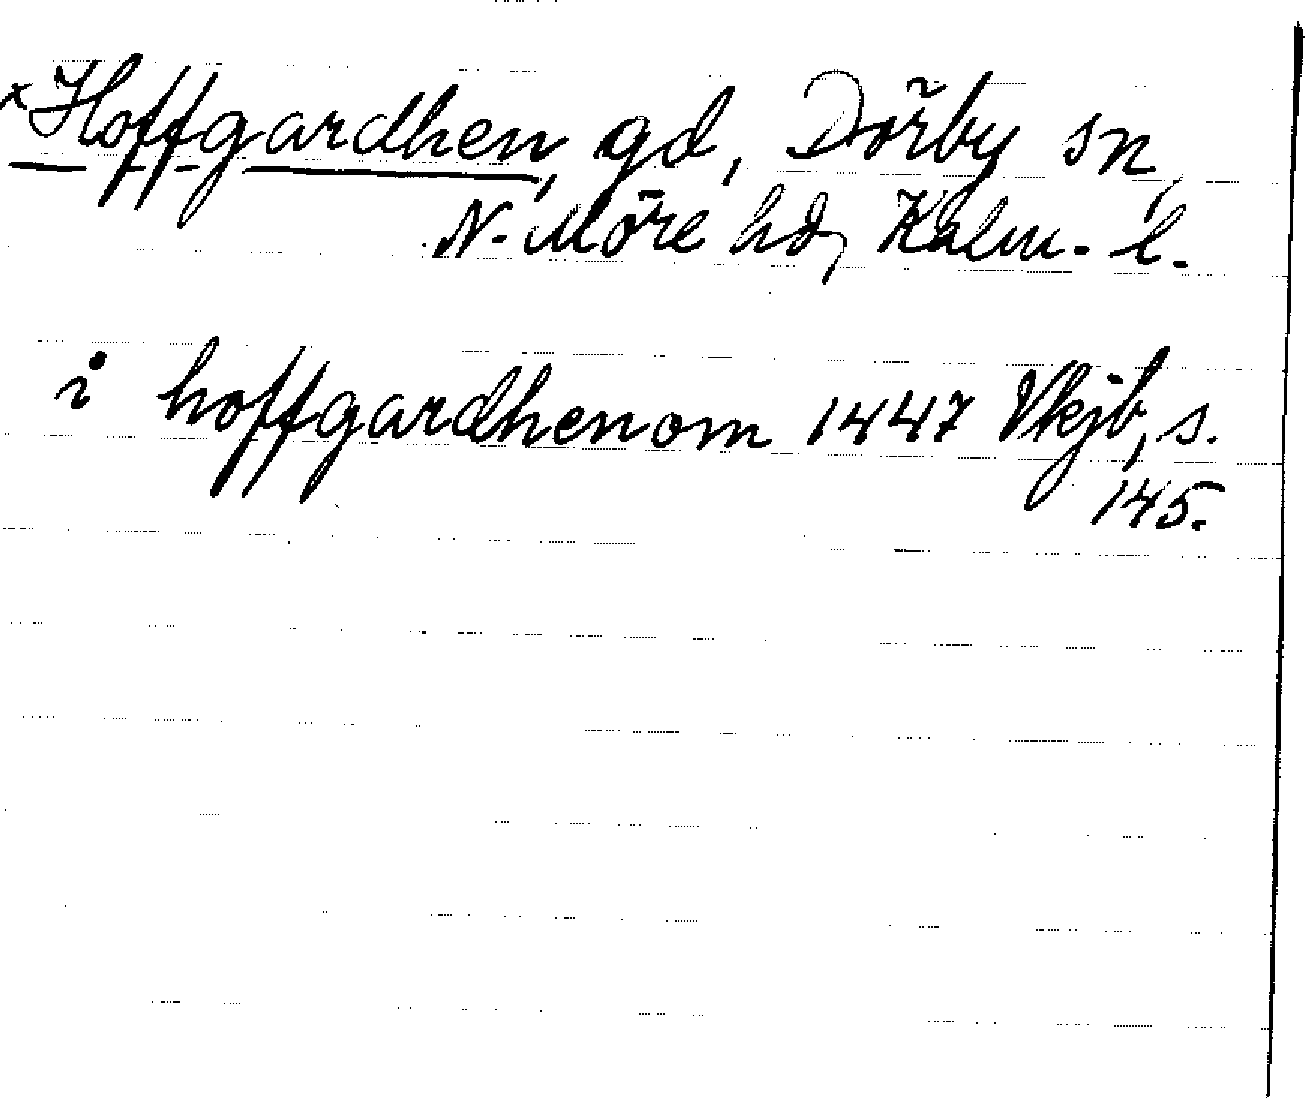 ×Hoffgardhen, gd, Dörby sn,
N. Möre hd, Kalm. l.
i hoffgardhenom 1447 Vkjb, s.
145.